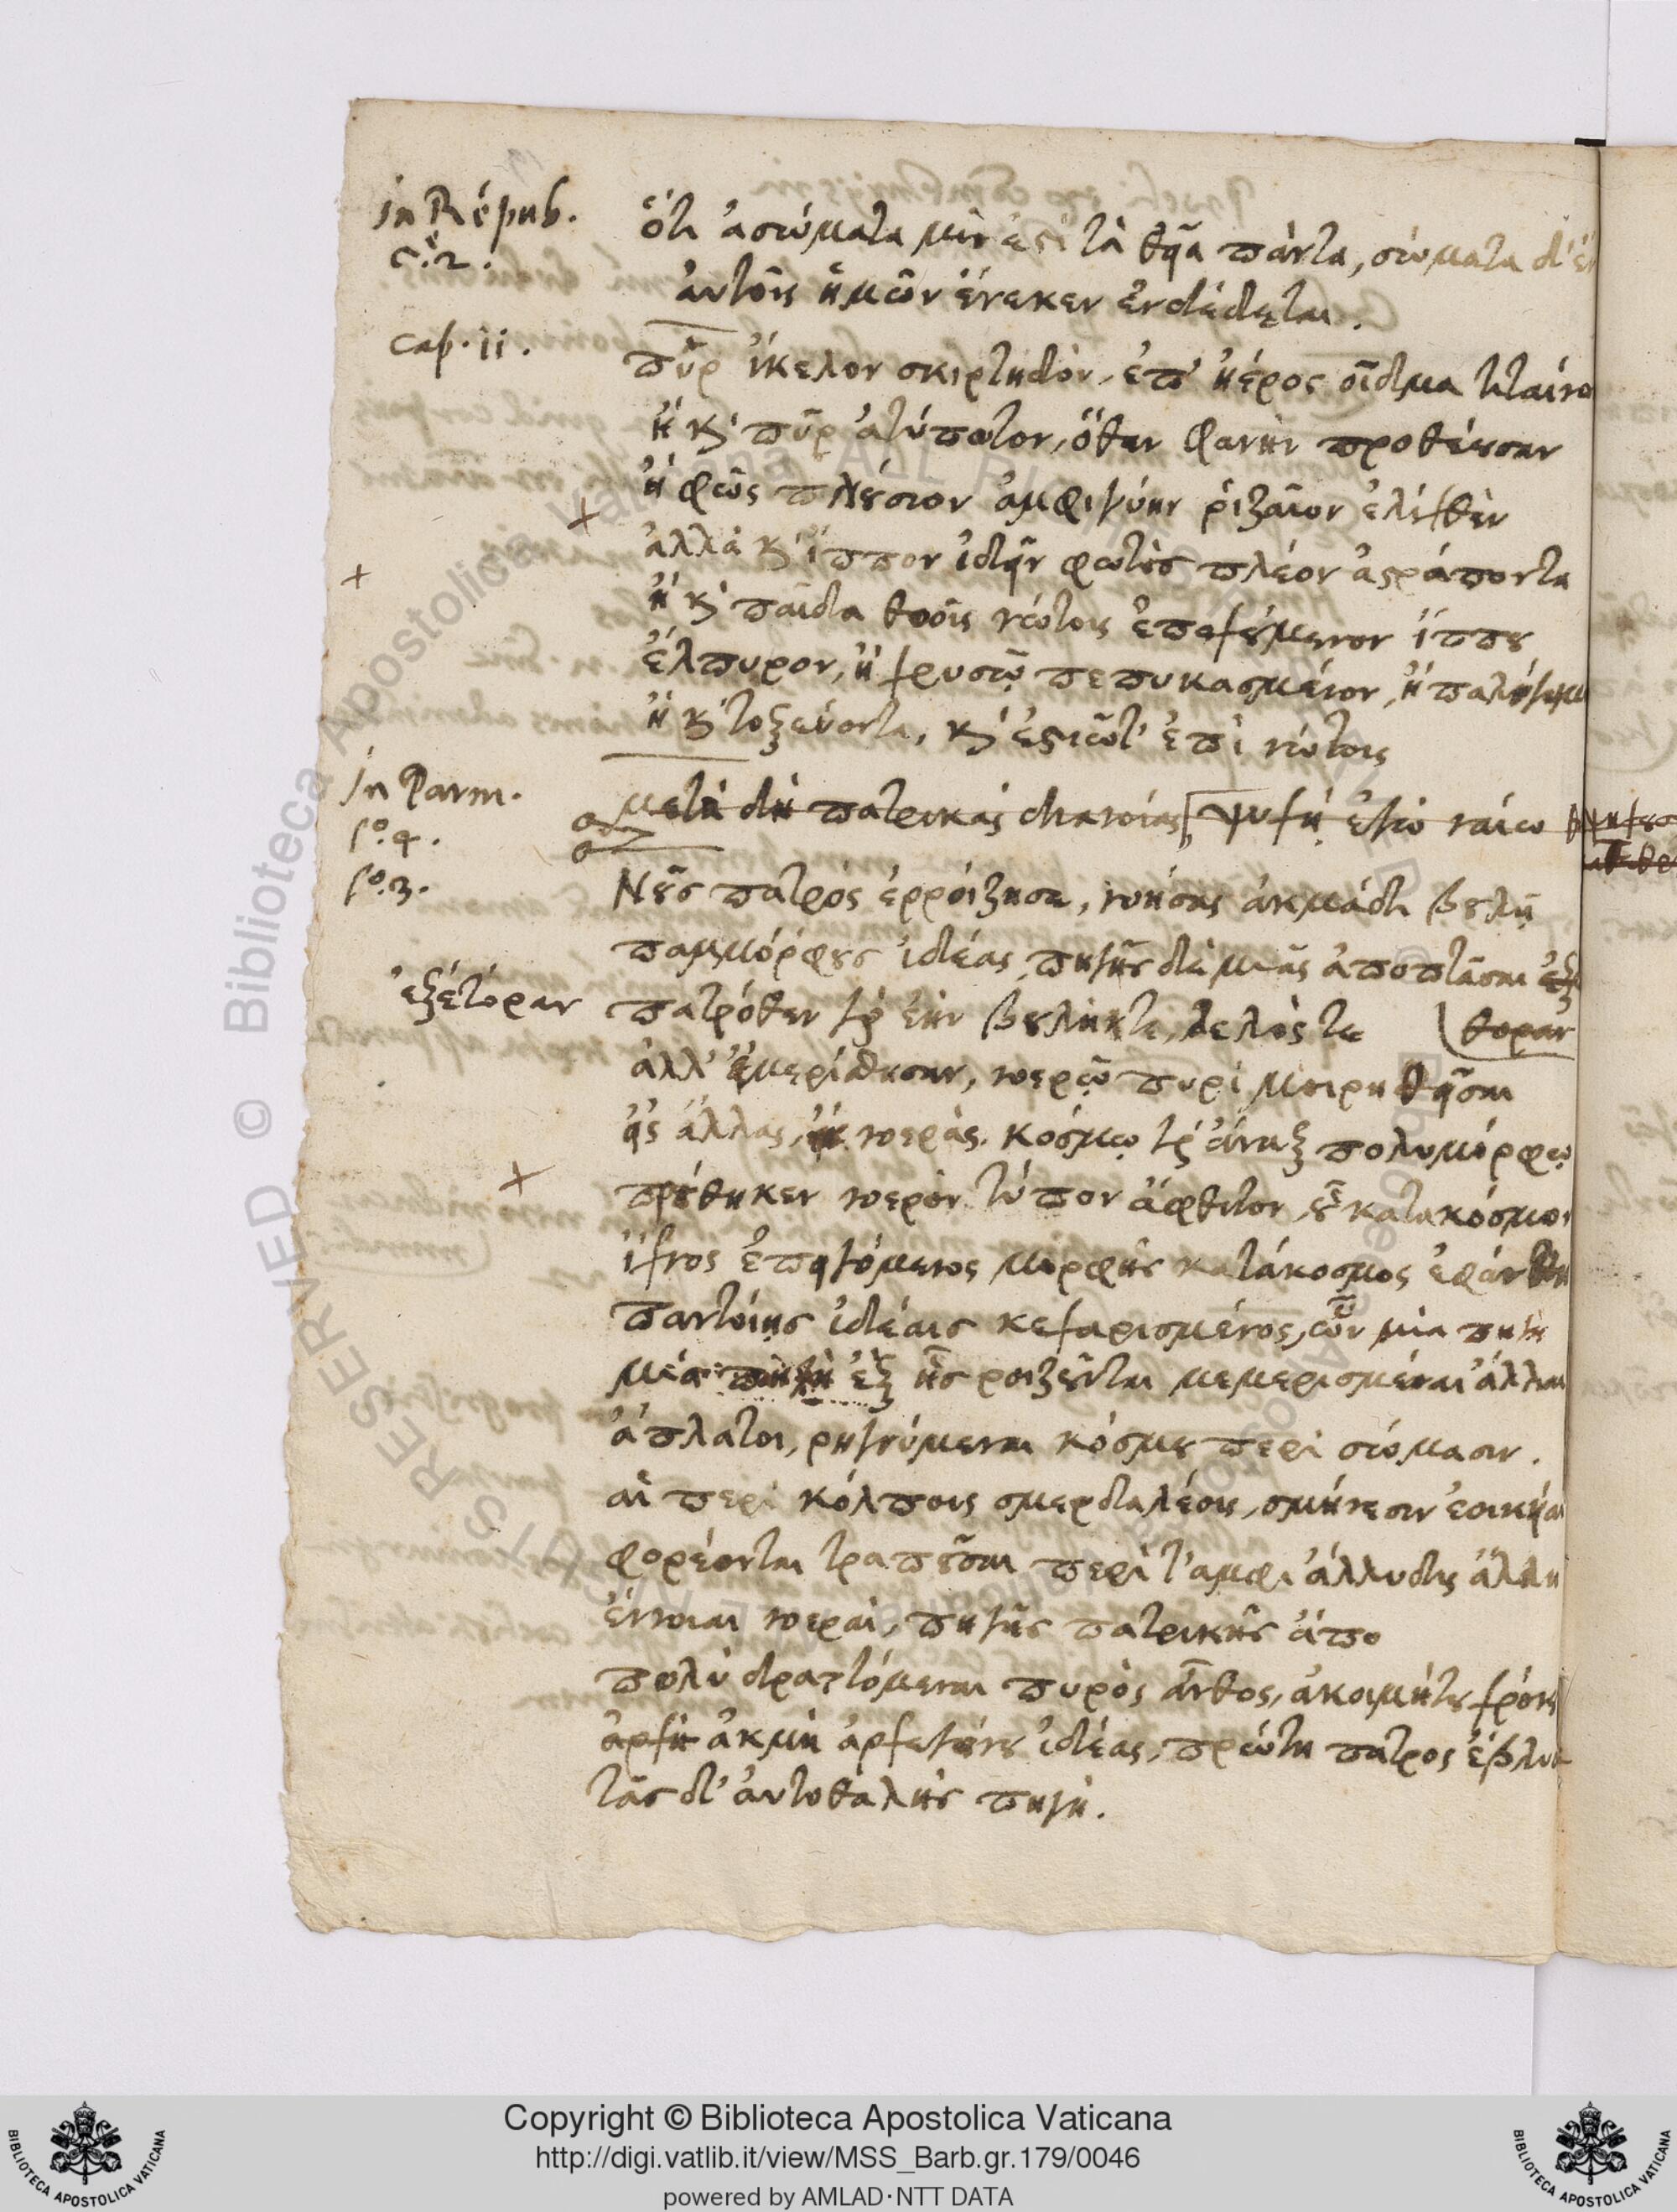 in Repub.
c. 2.
ὅτι ἀσώματα μὲν ἐστὶ τὰ θεῖα πάντα, σώματα δ' ἐν
αὐτοῖς ἡμῶν ἕνεκεν ἐνδέδεται.
cap. ii.
πῦρ ἴκελον σκιρτηδὸν, ἐπ' ἠέρος οἶδμα
ἢ καὶ πῦρ ἀτύπωτον, ὅθεν φωνὴν προθέουσαν
ἢ φῶς πλούσιον ἀμφιγύην ῥιζαῖον ἑλιχθὲν
ἀλλὰ καὶ ἵππον ἰδεῖν φωτὸς πλέον ἀστράποντα
ἢ καὶ παῖδα θοοῖς νώτοις ἐποχούμενον ἵππου
ἔμπυρον, ἢ χρυσῷ πεπυκασμένον, ἢ
ἢ καὶ τοξεύοντα, καὶ ἑστιῶτ' ἐπὶ νώτοις
in Parm.
lº. 4.
μετὰ δὴ πατρικὰς διανοίας, ψυχὴ ἐγὼ ναίω
lº. 3.
Νοῦς πατρὸς ἐρροίζησε, νοήσας ἀκμάδι βουλῇ
παμμόρφους ἰδέας, πηγῆς δὲ μιᾶς ἀποπτᾶσαι ἐξ
ἐξέτοραν
πατρόθεν γὰρ ἔην βουλή τε, τελός τε θοραν
ἀλλ' ἐμερίσθησαν, νοερῷ πυρὶ μοιρηθεῖσαι
εἰς ἄλλας, νοερὰς. κόσμῳ γὰρ ἄναξ πολυμόρφῳ
προὔθηκεν νοερὸν τύπον ἄφθιτον, οὗ κατακόσμον
ἴχνος ἐπειγόμενος μορφῆς κατάκοσμος ἐφάνθη
παντοίης ἰδέαις κεχαρισμένος, ὧν μία πηγὴ
μέα πηγὴ ἐξ ἧς ῥοιζοῦνται μεμερισμέναι ἄλλαι
ἄπλατοι, ῥηγνύμεναι κόσμου περὶ σώμασιν.
αἱ περὶ κόλποις σμερδαλέοις, σμήνεσιν ἐοικῆαι
φορέονται τραποῦσαι περὶ τ' ἀμφι ἄλλυδις ἄλλη
ἔννοιαι νοεραὶ, πηγῆς πατρικῆς ἄπο
πολὺ δραττόμεναι πυρὸς ἄνθος, ἀκοιμήτου χρόνου
ἀρχὴ ἀκμὴ ἀρχεγόνου ἰδέας, πρώτη πατρος ἔβλυσε
τᾶς δ' αὐτοθαλὴς πηγή.
Copyright © Biblioteca Apostolica Vaticana
http://digi.vatlib.it/view/MSS_Barb.gr.179/0046
powered by AMLAD·NTT DATA